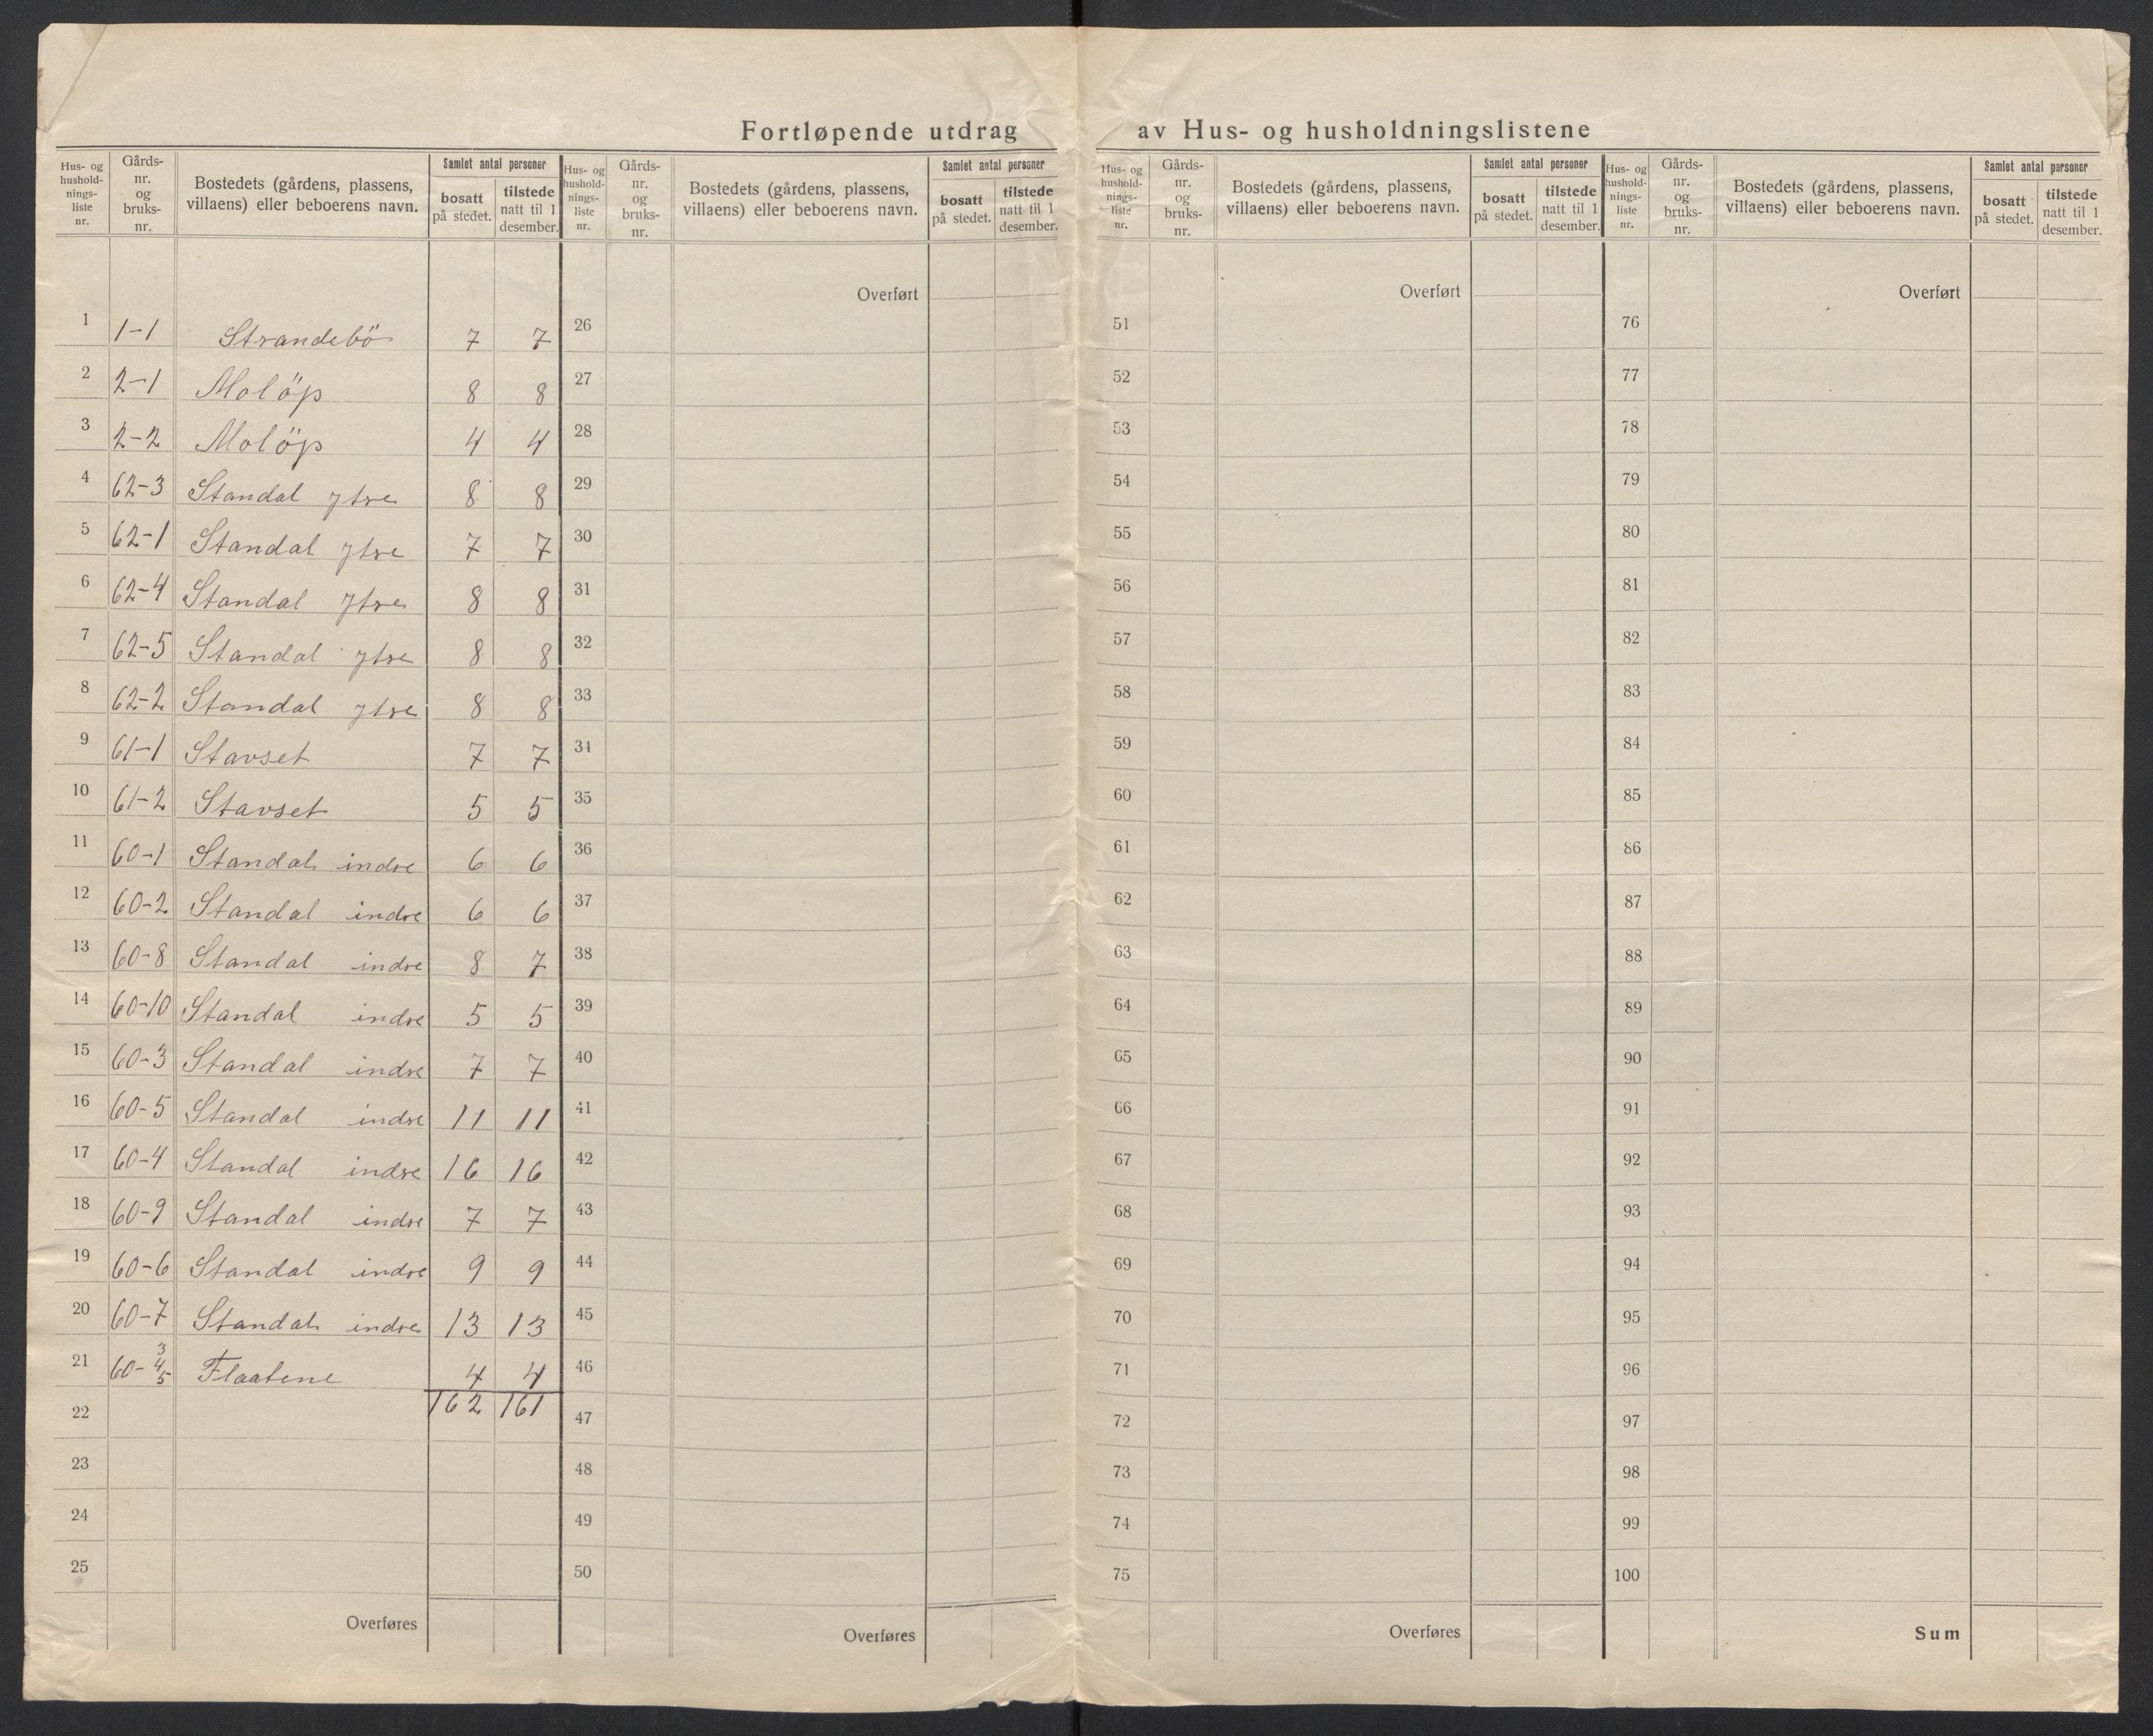 Fortløpende utdrag av Hus- og husholdningslistene
Hus- og hushold-nings-liste nr. Gårds-nr. og bruks-nr. Bostedets (gårdens, plassens, villaens) eller beboerens navn. Samlet antal personer bosatt på stedet. tilstede natt til 1 desember.
Hus- og hushold-nings-liste nr. Gårds-nr. og bruks-nr. Bostedets (gårdens, plassens, villaens) eller beboerens navn. Samlet antal personer bosatt på stedet. tilstede natt til 1 desember.
Hus- og hushold-nings-liste nr. Gårds-nr. og bruks-nr. Bostedets (gårdens, plassens, villaens) eller beboerens navn. Samlet antal personer bosatt på stedet. tilstede natt til 1 desember.
Hus- og hushold-nings-liste nr. Gårds-nr. og bruks-nr. Bostedets (gårdens, plassens, villaens) eller beboerens navn. Samlet antal personer bosatt på stedet. tilstede natt til 1 desember.
Overført Overført Overført
1 1-1 Strandebö 7 7 26 51 76
2 2-1 Molöp 8 8 27 52 77
3 2-2 Molöp 4 4 28 53 78
4 62-3 Standal ytre 8 8 29 54 79
5 62-1 Standal ytre 7 7 30 55 80
6 62-4 Standal ytre 8 8 31 56 81
7 62-5 Standal ytre 8 8 32 57 82
8 62-2 Standal ytre 8 8 33 58 83
9 61-1 Stavset 7 7 34 59 84
10 61-2 Stavset 5 5 35 60 85
11 60-1 Standal indre 6 6 36 61 86
12 60-2 Standal indre 6 6 37 62 87
13 60-8 Standal indre 8 7 38 63 88
14 60-10 Standal indre 5 5 39 64 89
15 60-3 Standal indre 7 7 40 65 90
16 60-5 Standal indre 11 11 41 66 91
17 60-4 Standal indre 16 16 42 67 92
18 60-9 Standal indre 7 7 43 68 93
19 60-6 Standal indre 9 9 44 69 94
20 60-7 Standal indre 13 13 45 70 95
21 60- 3 4 5 Flaatene 4 4 46 71 96
22 162 161 47 72 97
23 48 73 98
24 49 74 99
25 50 75 100
Overføres Overføres Overføres Sum